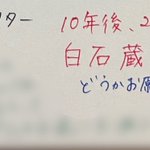 ター
10年後、2
白石 蔵
どうかお願